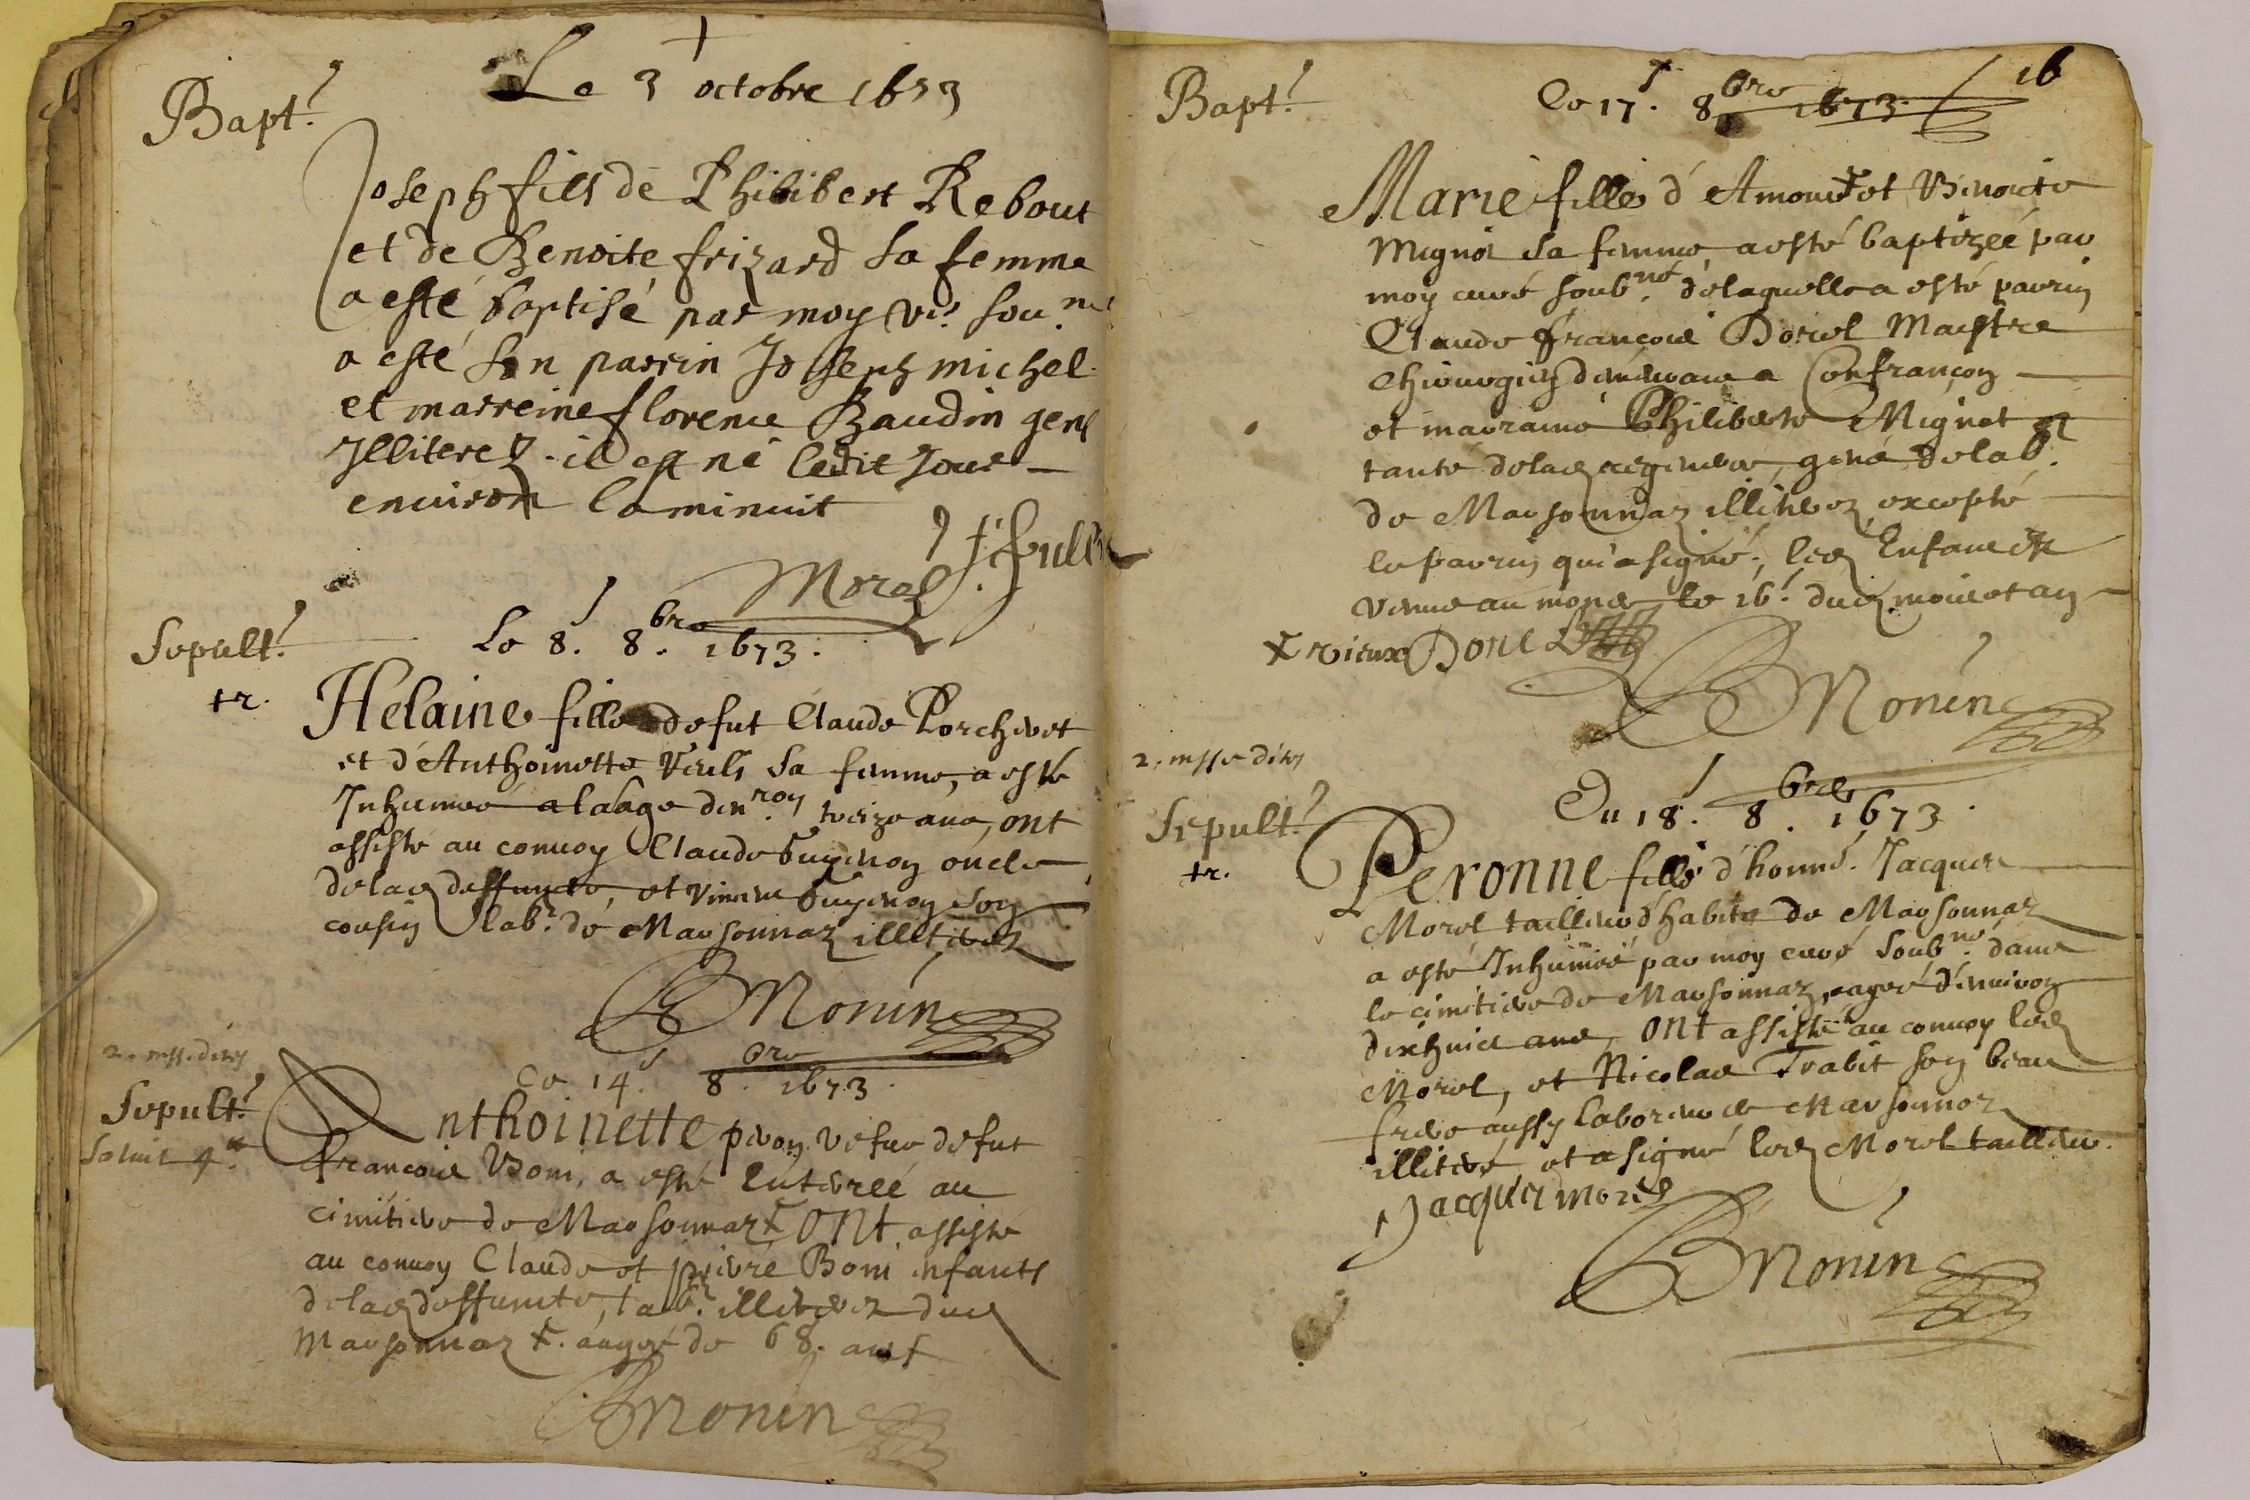 Bapt.
Le 3 octobre 1673
Joseph fils de Philibert Rebout
et de Benoite frizard sa femme
a esté baptisé par moy vic. sou.né
a esté son parrin Joseph michel
et marreine florence Baudin gens
Jlliterez. il est né ledit Jour
environ la minuit
Morel
Sepult.
Le 8. 8.bre 1673.
+r.
Helaine fille de fut Claude Porcheret
et d'Anthoinette sa femme, a esté
Inhumée a laage den.ron treize ans, ont
assisté au convoy Claude Guyenon oncle
delad deffuncte, et Guyenon son
cousin lab.r de Marsonnaz illiterez
Monin
2. messe dites
Ce 14. 8.bre 1673.
Sepult.
Anthoinette veufve de fut
francois Boni, a esté Enterrée au
cimitiere de Marsonnaz + ont assisté
au convoy Claude et pierre Boni enfants
delad deffuncte, lab.r illiterez dud
Marsonnaz +. augée de 68. ans
Monin
16
Bapt.
Ce 17. 8.bre 1673.
Marie fille d'Amour + et Benoicte
Mignot sa femme, a esté baptizée par
moy curé soub.né delaquelle a esté parrin
Claude françois Dorel Maistre
Chirurgien demeurant a Confrançon
et marraine Philiberte Mignot
tante delad gens de lab.
de Marsonnaz illiterez excepté
le parrin qui a signé, led Enfant est
venue au monde le 16. dud mois et an
+ vieux Dorel
Monin
2. messe dites
Du 18. 8.bre 1673.
Sepult.
+r.
Peronne fille d'honn.é Jacques
Morel tailleur d'habits de Marsonnaz
a esté Inhumée par moy curé Soub.né dans
le cimitiere de Marsonnaz, agée d'environ
dixhuict ans, ont assisté au convoy led
Morel, et Nicolas Trabit son beau
frere aussy laboreur de Marsonnaz
illiteré, et a signé led Morel tailleur.
Jacques morel
Monin